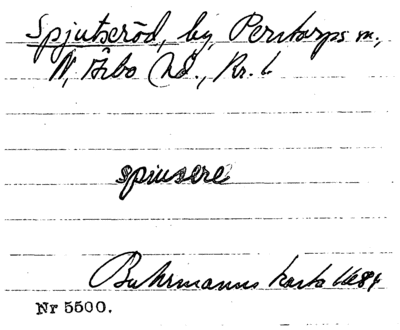 Spjutseröd, by, Perstorps sn.,
N. Åsbo hd., Kr. l.
spiusere
Buhrmanns karta 1684
Nr 5500.